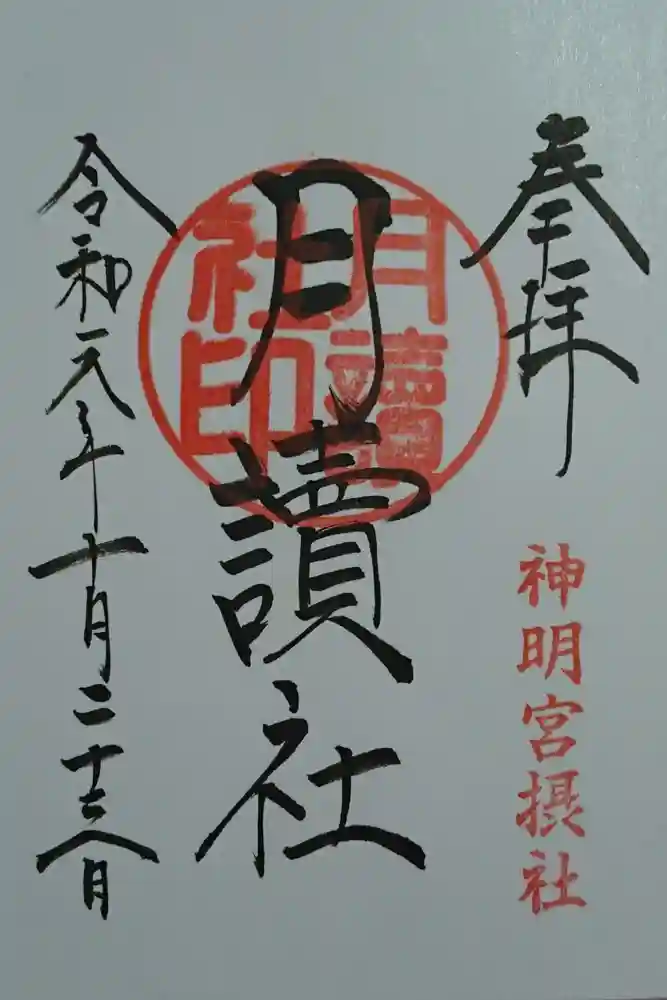 奉拝
神明宮摂社
月讀社
月讀
社印
令和元年十月二十日